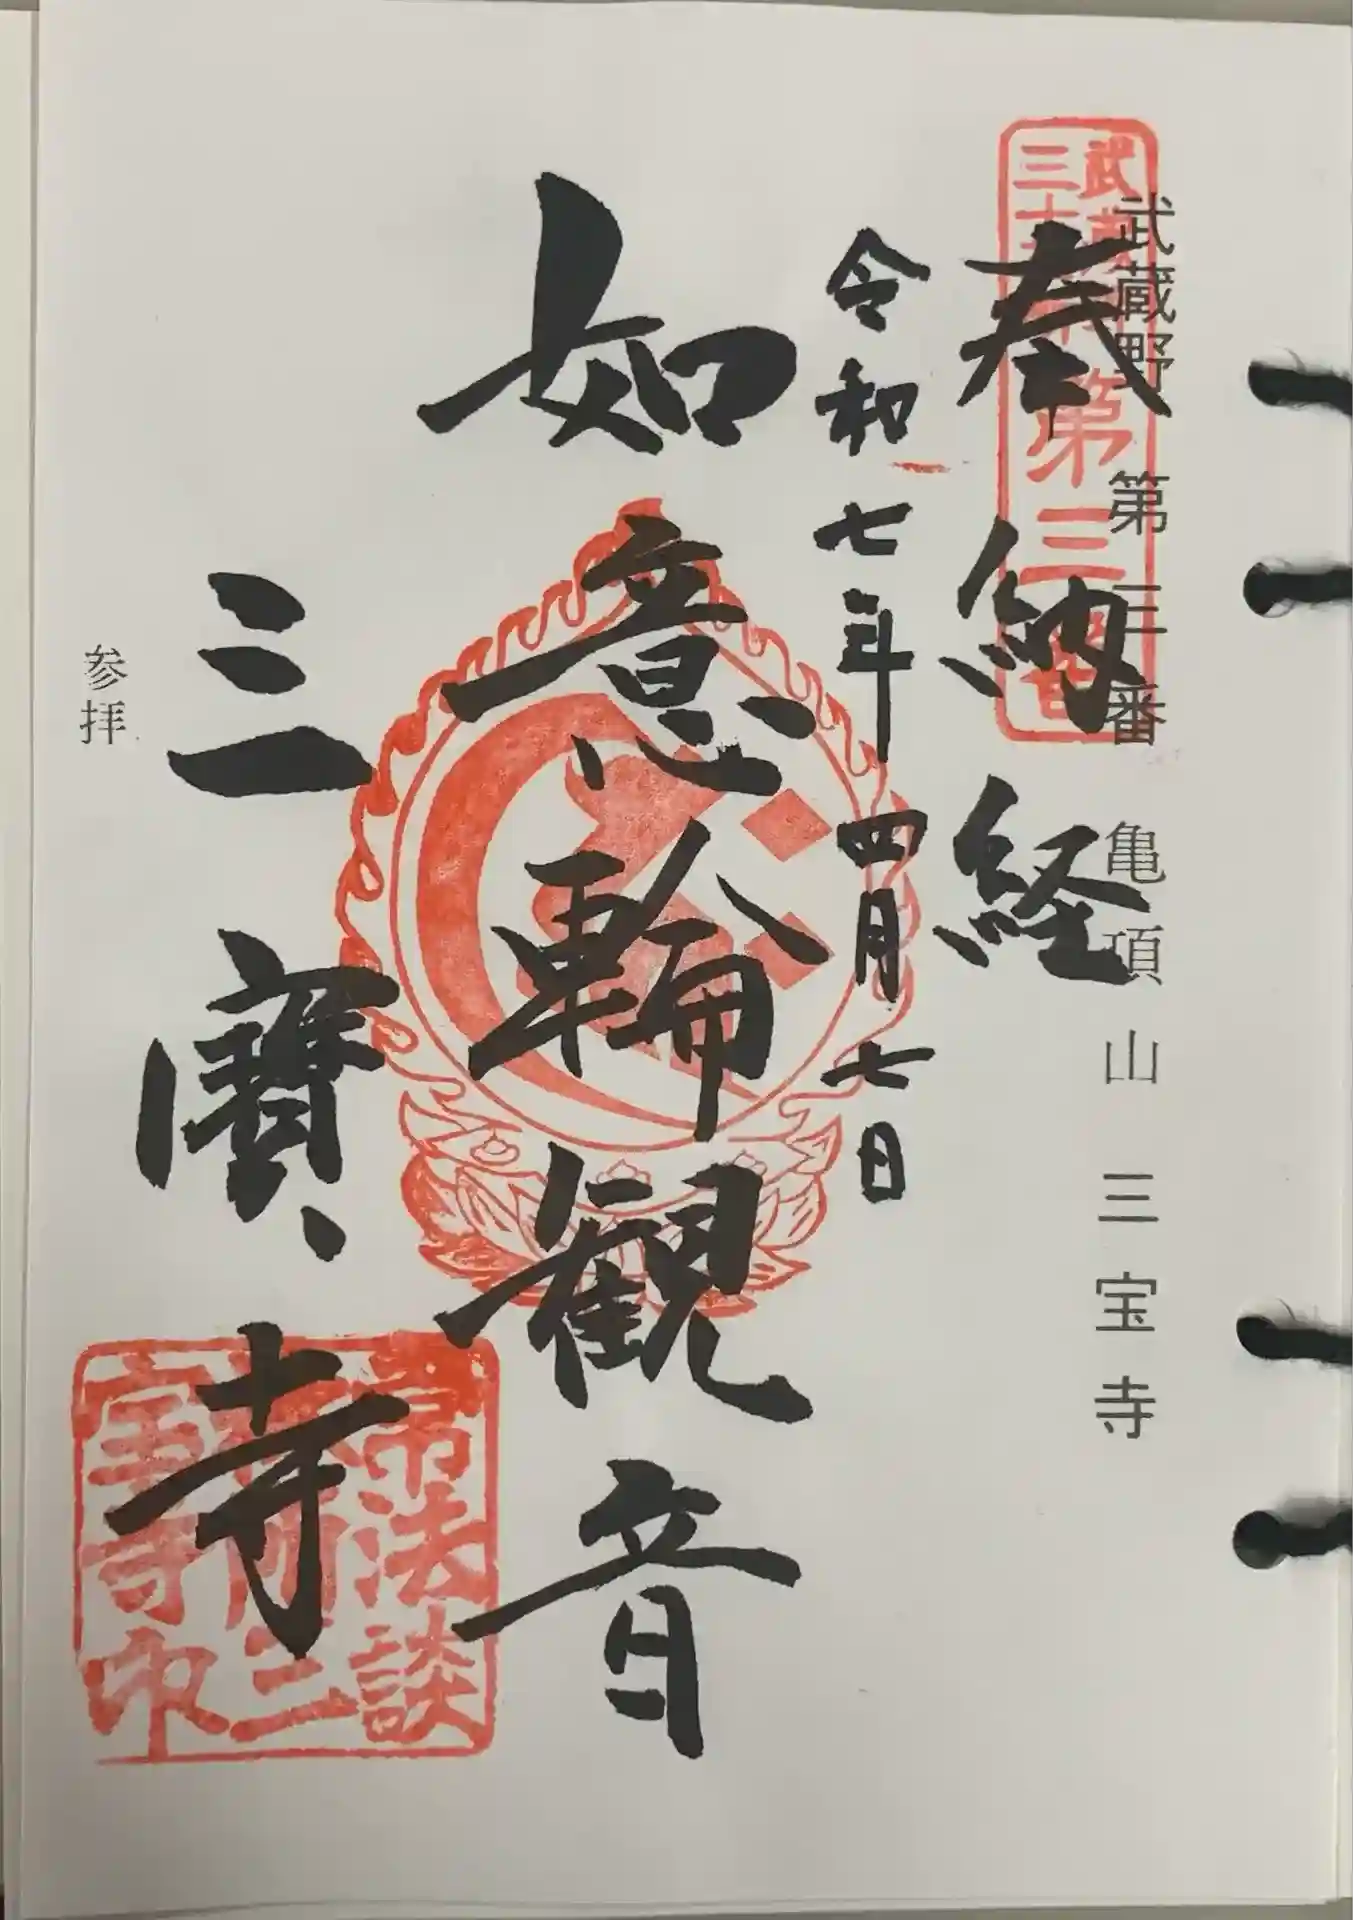 武蔵野 第三番 亀頂山 三宝寺
武蔵
三十 第三番
奉納経
令和七年四月七日
如意輪観音
三寳寺
常法談
所三
宝寺印
参拝